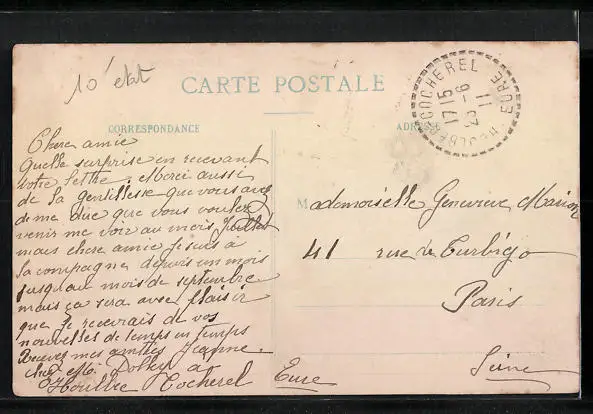 10 état
CARTE POSTALE
CORRESPONDANCE
COCHEREL EURE
1715
23-6
11
Chere amie
Quelle surprise en recevant
votre lettre. Merci aussi
de la gentillesse que vous avez
de me dire que vous voulez
venir me voir au mois Juillet
mais chere amie je suis à
la compagne depuis un mois
jusqu'au mois de septembre
mais ça sera avec plaisir
que je recevrais de vos
nouvelles de temps en temps
Recevez mes amitiés Jeanne.
chez M.
Cocherel Eure
Mademoiselle Genevieve
41 rue de Turbigo
Paris
Seine